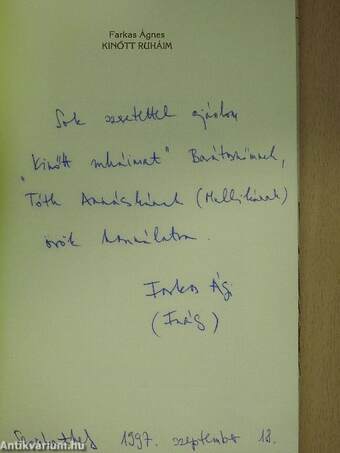 Farkas Ágnes
KINŐTT RUHÁIM
Sok szeretettel ajánlom
"Kinőtt ruháimat" Barátnőmnek,
Tóth Annácskának (Mallikának)
örök használatra.
Farkas Ági
(Fuág)
1997. szeptember 18.
antikvarium.hu